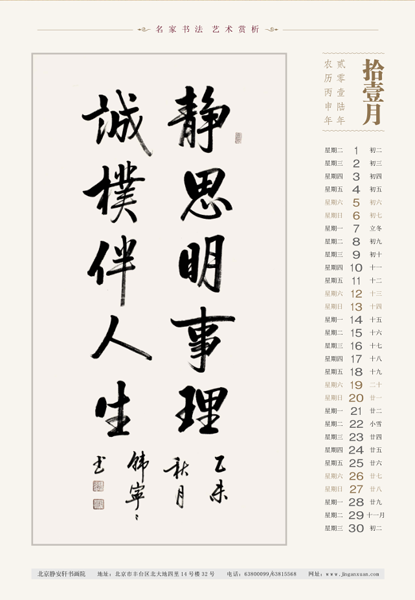 名家书法 艺术赏析
静思明事理
誠樸伴人生
乙未
秋月
韩寧寧
书
拾壹月
贰零壹陆年
农历丙申年
星期二 1 初二
星期三 2 初三
星期四 3 初四
星期五 4 初五
星期六 5 初六
星期日 6 初七
星期一 7 立冬
星期二 8 初九
星期三 9 初十
星期四 10 十一
星期五 11 十二
星期六 12 十三
星期日 13 十四
星期一 14 十五
星期二 15 十六
星期三 16 十七
星期四 17 十八
星期五 18 十九
星期六 19 二十
星期日 20 廿一
星期一 21 廿二
星期二 22 小雪
星期三 23 廿四
星期四 24 廿五
星期五 25 廿六
星期六 26 廿七
星期日 27 廿八
星期一 28 廿九
星期二 29 十一月
星期三 30 初二
北京静安轩书画院 地址：北京市丰台区北大地四里14号楼32号 电话：63800099/63815568 网址：www.jinganxuan.com